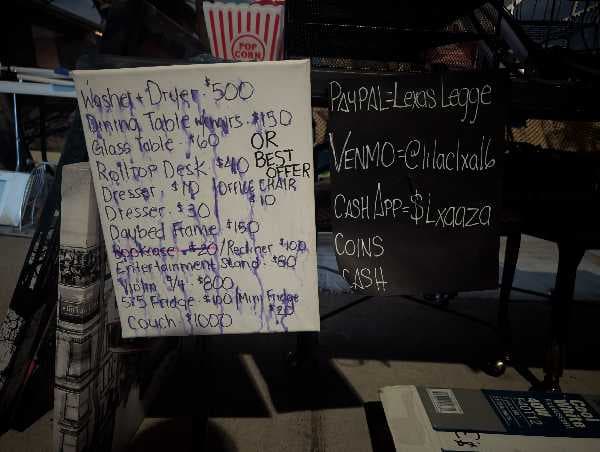 POP
CORN
Washer + Dryer $500
Dining Table w/chairs $150
Glass Table $60
OR
BEST
OFFER
Rolltop Desk $40
Dresser $70
OFFICE CHAIR
$10
Dresser $30
Daybed Frame $150
Bookcase $20/Recliner $100
Entertainment Stand $80
Violin 3/4 $800
5'5 Fridge $100 Mini Fridge
$20
Couch $1000
PAYPAL=Lexas Legge
VENMO=@lilaclxal6
CASH APP=$Lxaaza
COINS
CASH
Cool
White
40W T12